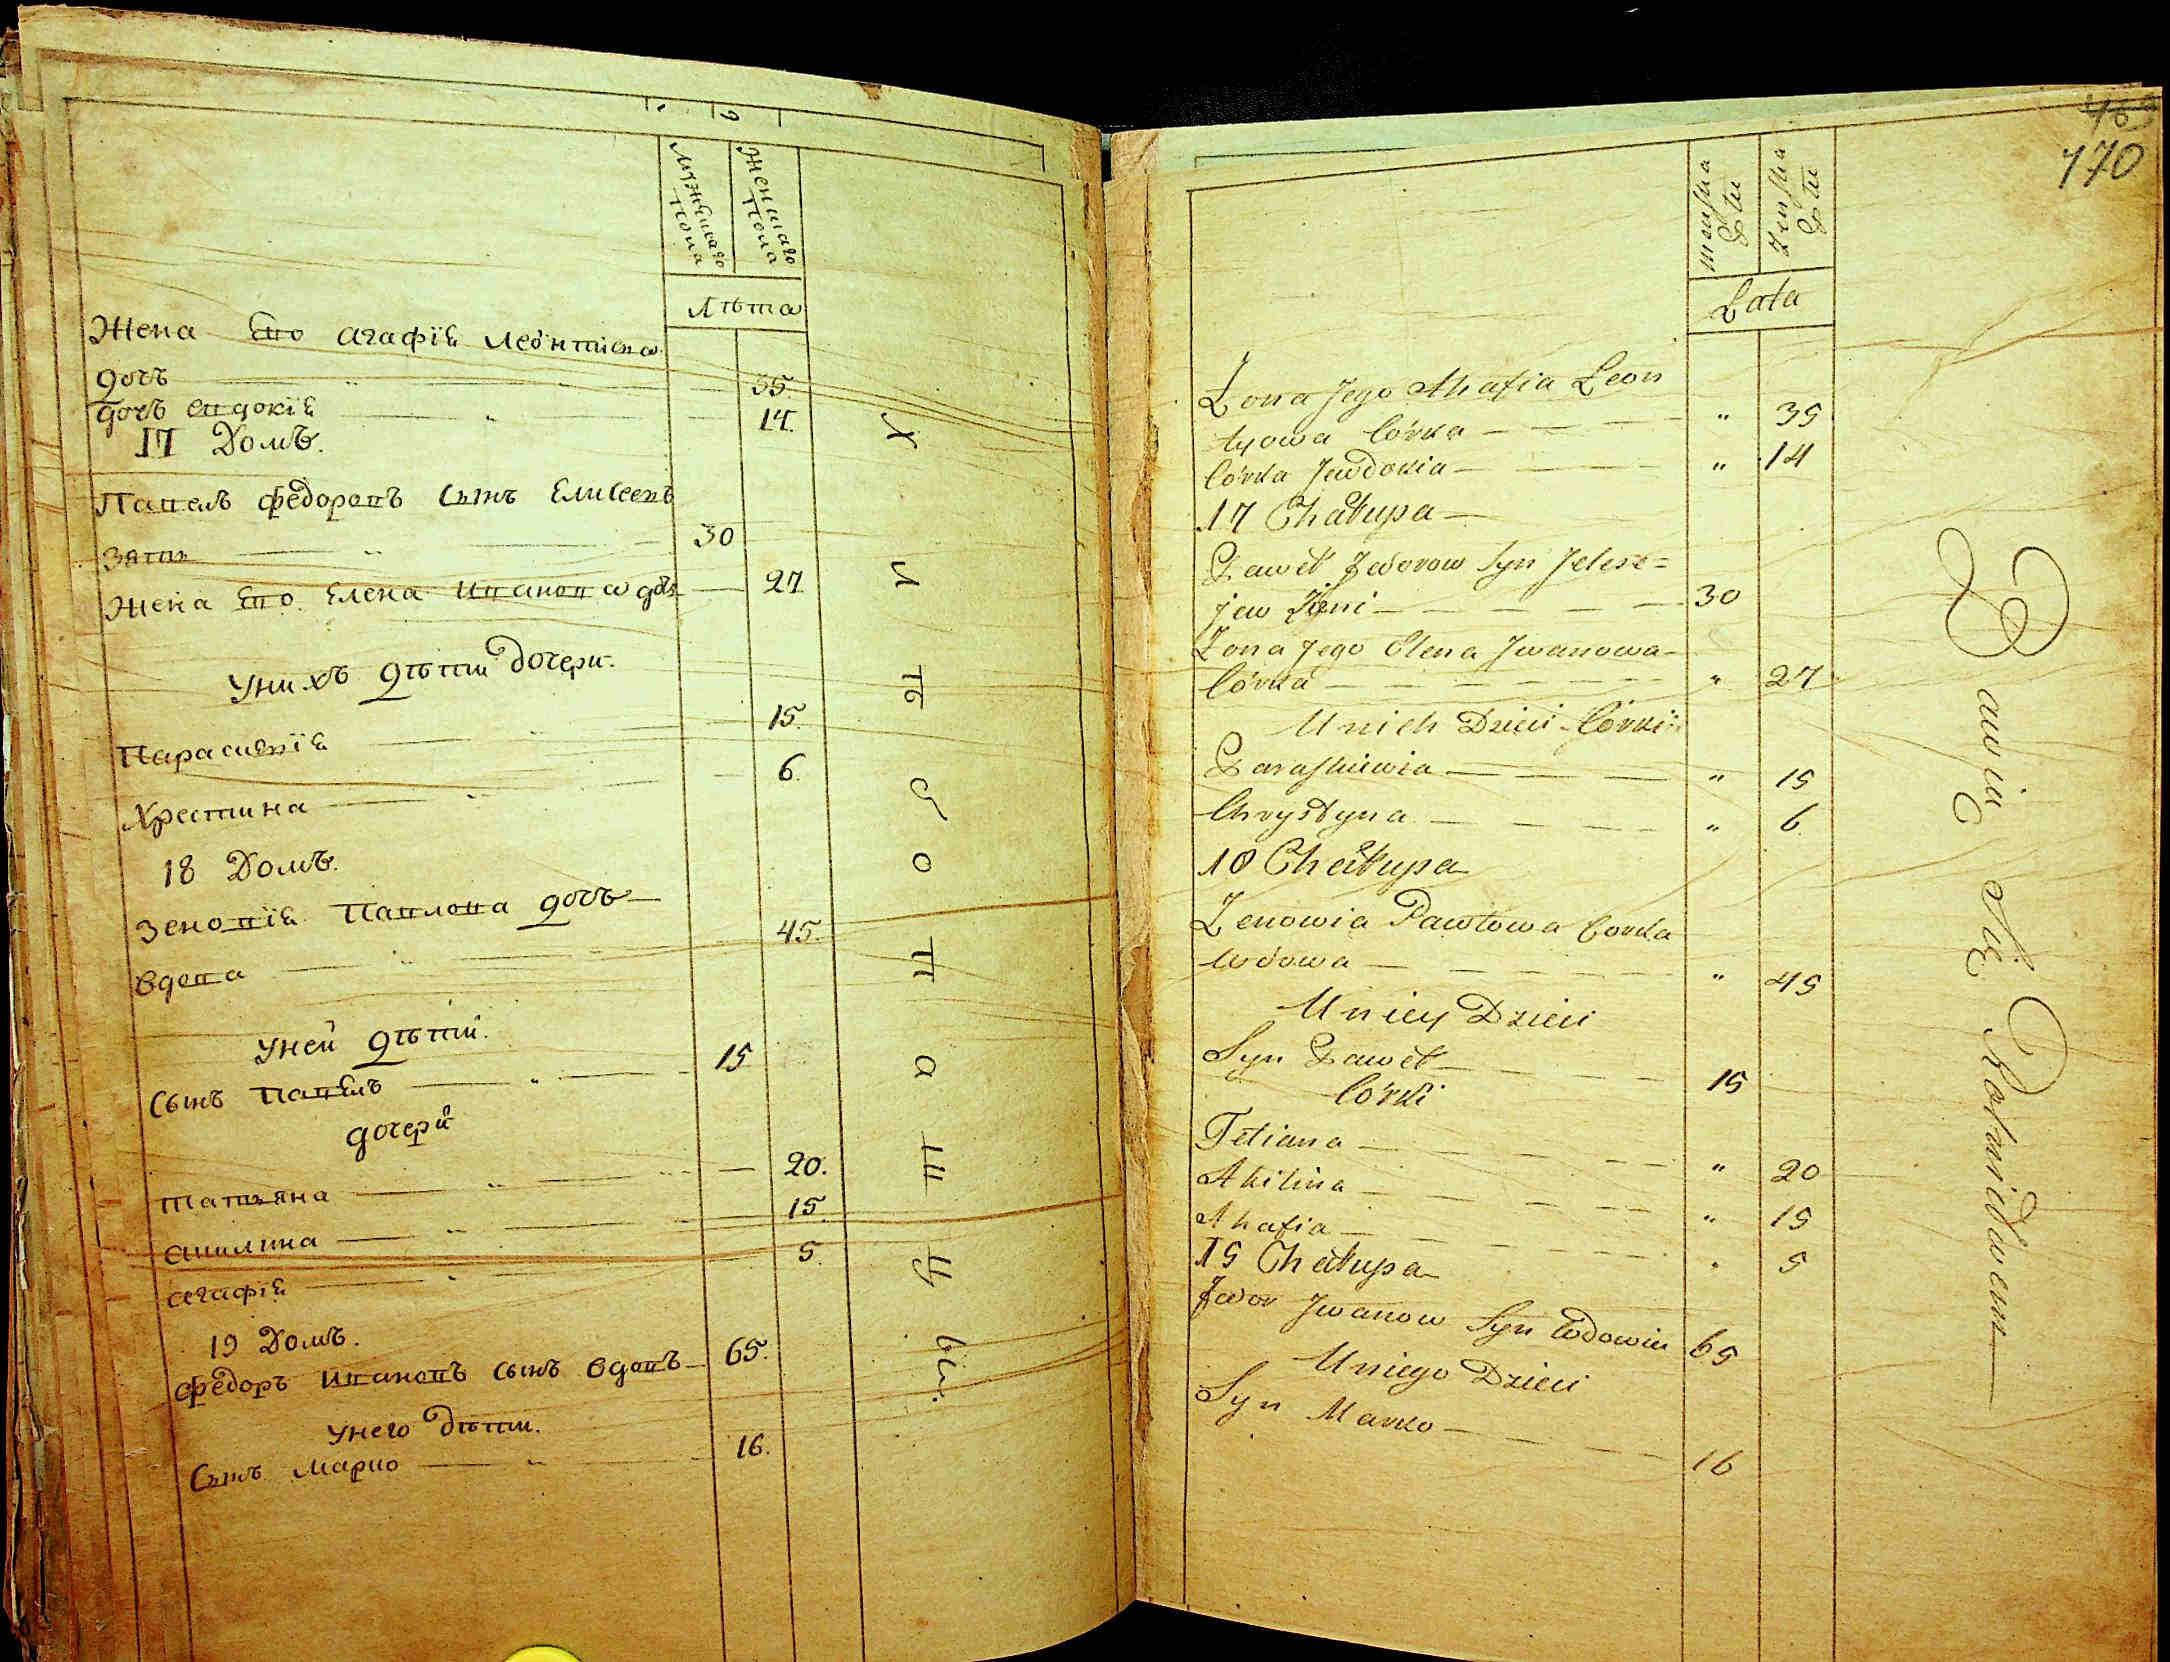 Мужескаго пола
Женскаго пола
Лѣта
Жена Его агафiя леонтиева
дочъ — " — 35.
дочъ евдокiя — " — 14.
17 Домъ.
Павелъ федоровъ сынъ Елисеевъ
Зять — " — 30
Жена Его Елена Иванова дочъ — 27
Унихъ дѣти дочери.
Параскевiя — 15.
Хрестина — " — 6.
18 Домъ.
Зеновiя Павлова дочъ —
вдова — " — 45.
Уней дѣти.
Сынъ Павелъ — " — 15
дочери
татьяна — " — 20.
акилина — " — 15.
агафiя — " — 5.
19 Домъ.
федоръ Ивановъ сынъ вдовъ — 65.
Унего дѣти.
Сынъ Марко — " — 16.
Хлѣбопашцы.
170
męzka Płci
Zenska Płci
Lata
Zona Jego Ahafia Leon
tyowa Córka — " 35
Córka Jewdokia — " 14
17 Chałupa —
Paweł Fedorow Syn Jelese=
jew — 30
Zona Jego Elena Jwanowa
Córka — " 27
Unich Dzieci Córki
Paraskiewia — " 15
Chrystyna — " 6
18 Chałupa
Zenowia Pawłowa Corka
Wdowa — " 45
Uniey Dzieci
Syn Paweł — 15
Córki
Tetiana — " 20
Akilina — " 15
Ahafia — " 5
19 Chałupa
Fedor Jwanow Syn Wdowiec 65
Uniego Dzieci
Syn Marko — 16
Bawią się Rolnictwem —